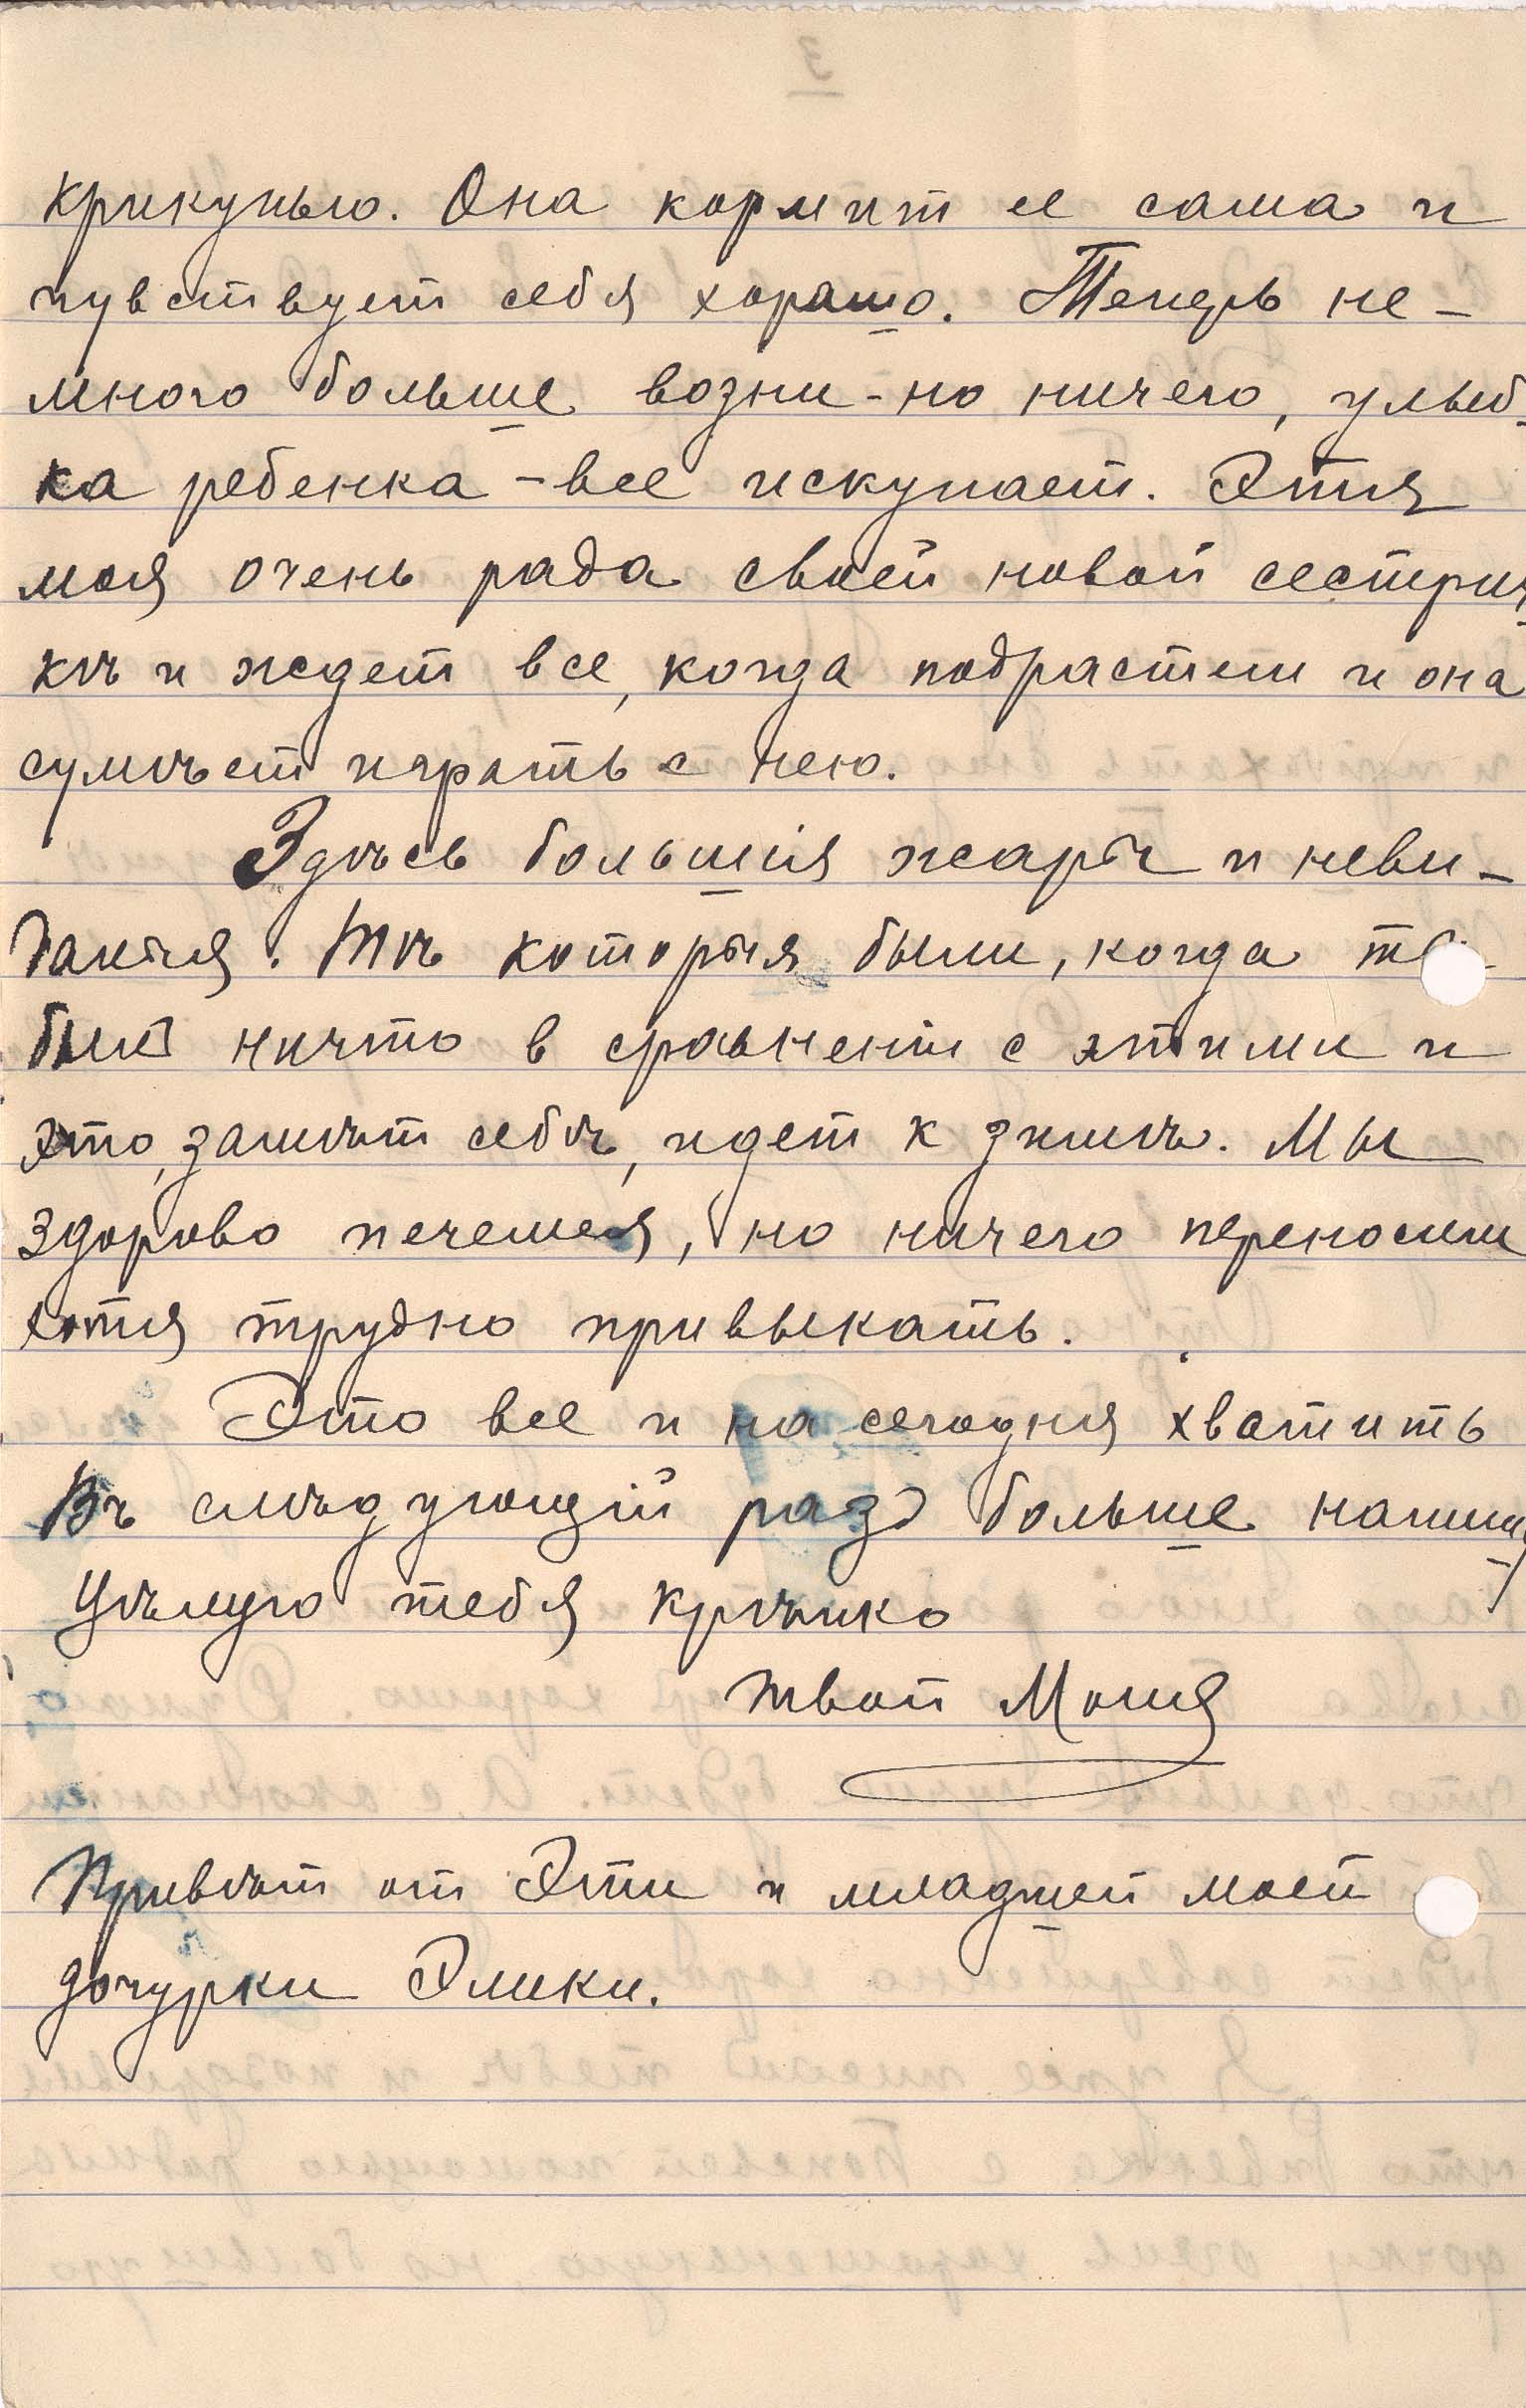 крикунью. Она кормит ее сама и
чувствует себя хорошо. Теперь не-
много больше возни - но ничего, улыб-
ка ребенка - все искупает. Этя
моя очень рада своей новой сестрич-
кѣ и ждет все, когда подрастет и она
сумѣет играть с нею.
Здѣсь большия жары и неви-
даныя. Тѣ которыя были, когда ты
был ничто в сравнении с этими и
это, замѣт себѣ, идет к зимѣ. Мы
здорово печемся, но ничего переносим
хотя трудно привыкать.
Это все и на сегодня хватить
Въ слѣдующій разъ больше напишу
Цѣлую тебя крѣпко
твой Моня
Привѣт от Эти и младшей моей
дочурки Элики.